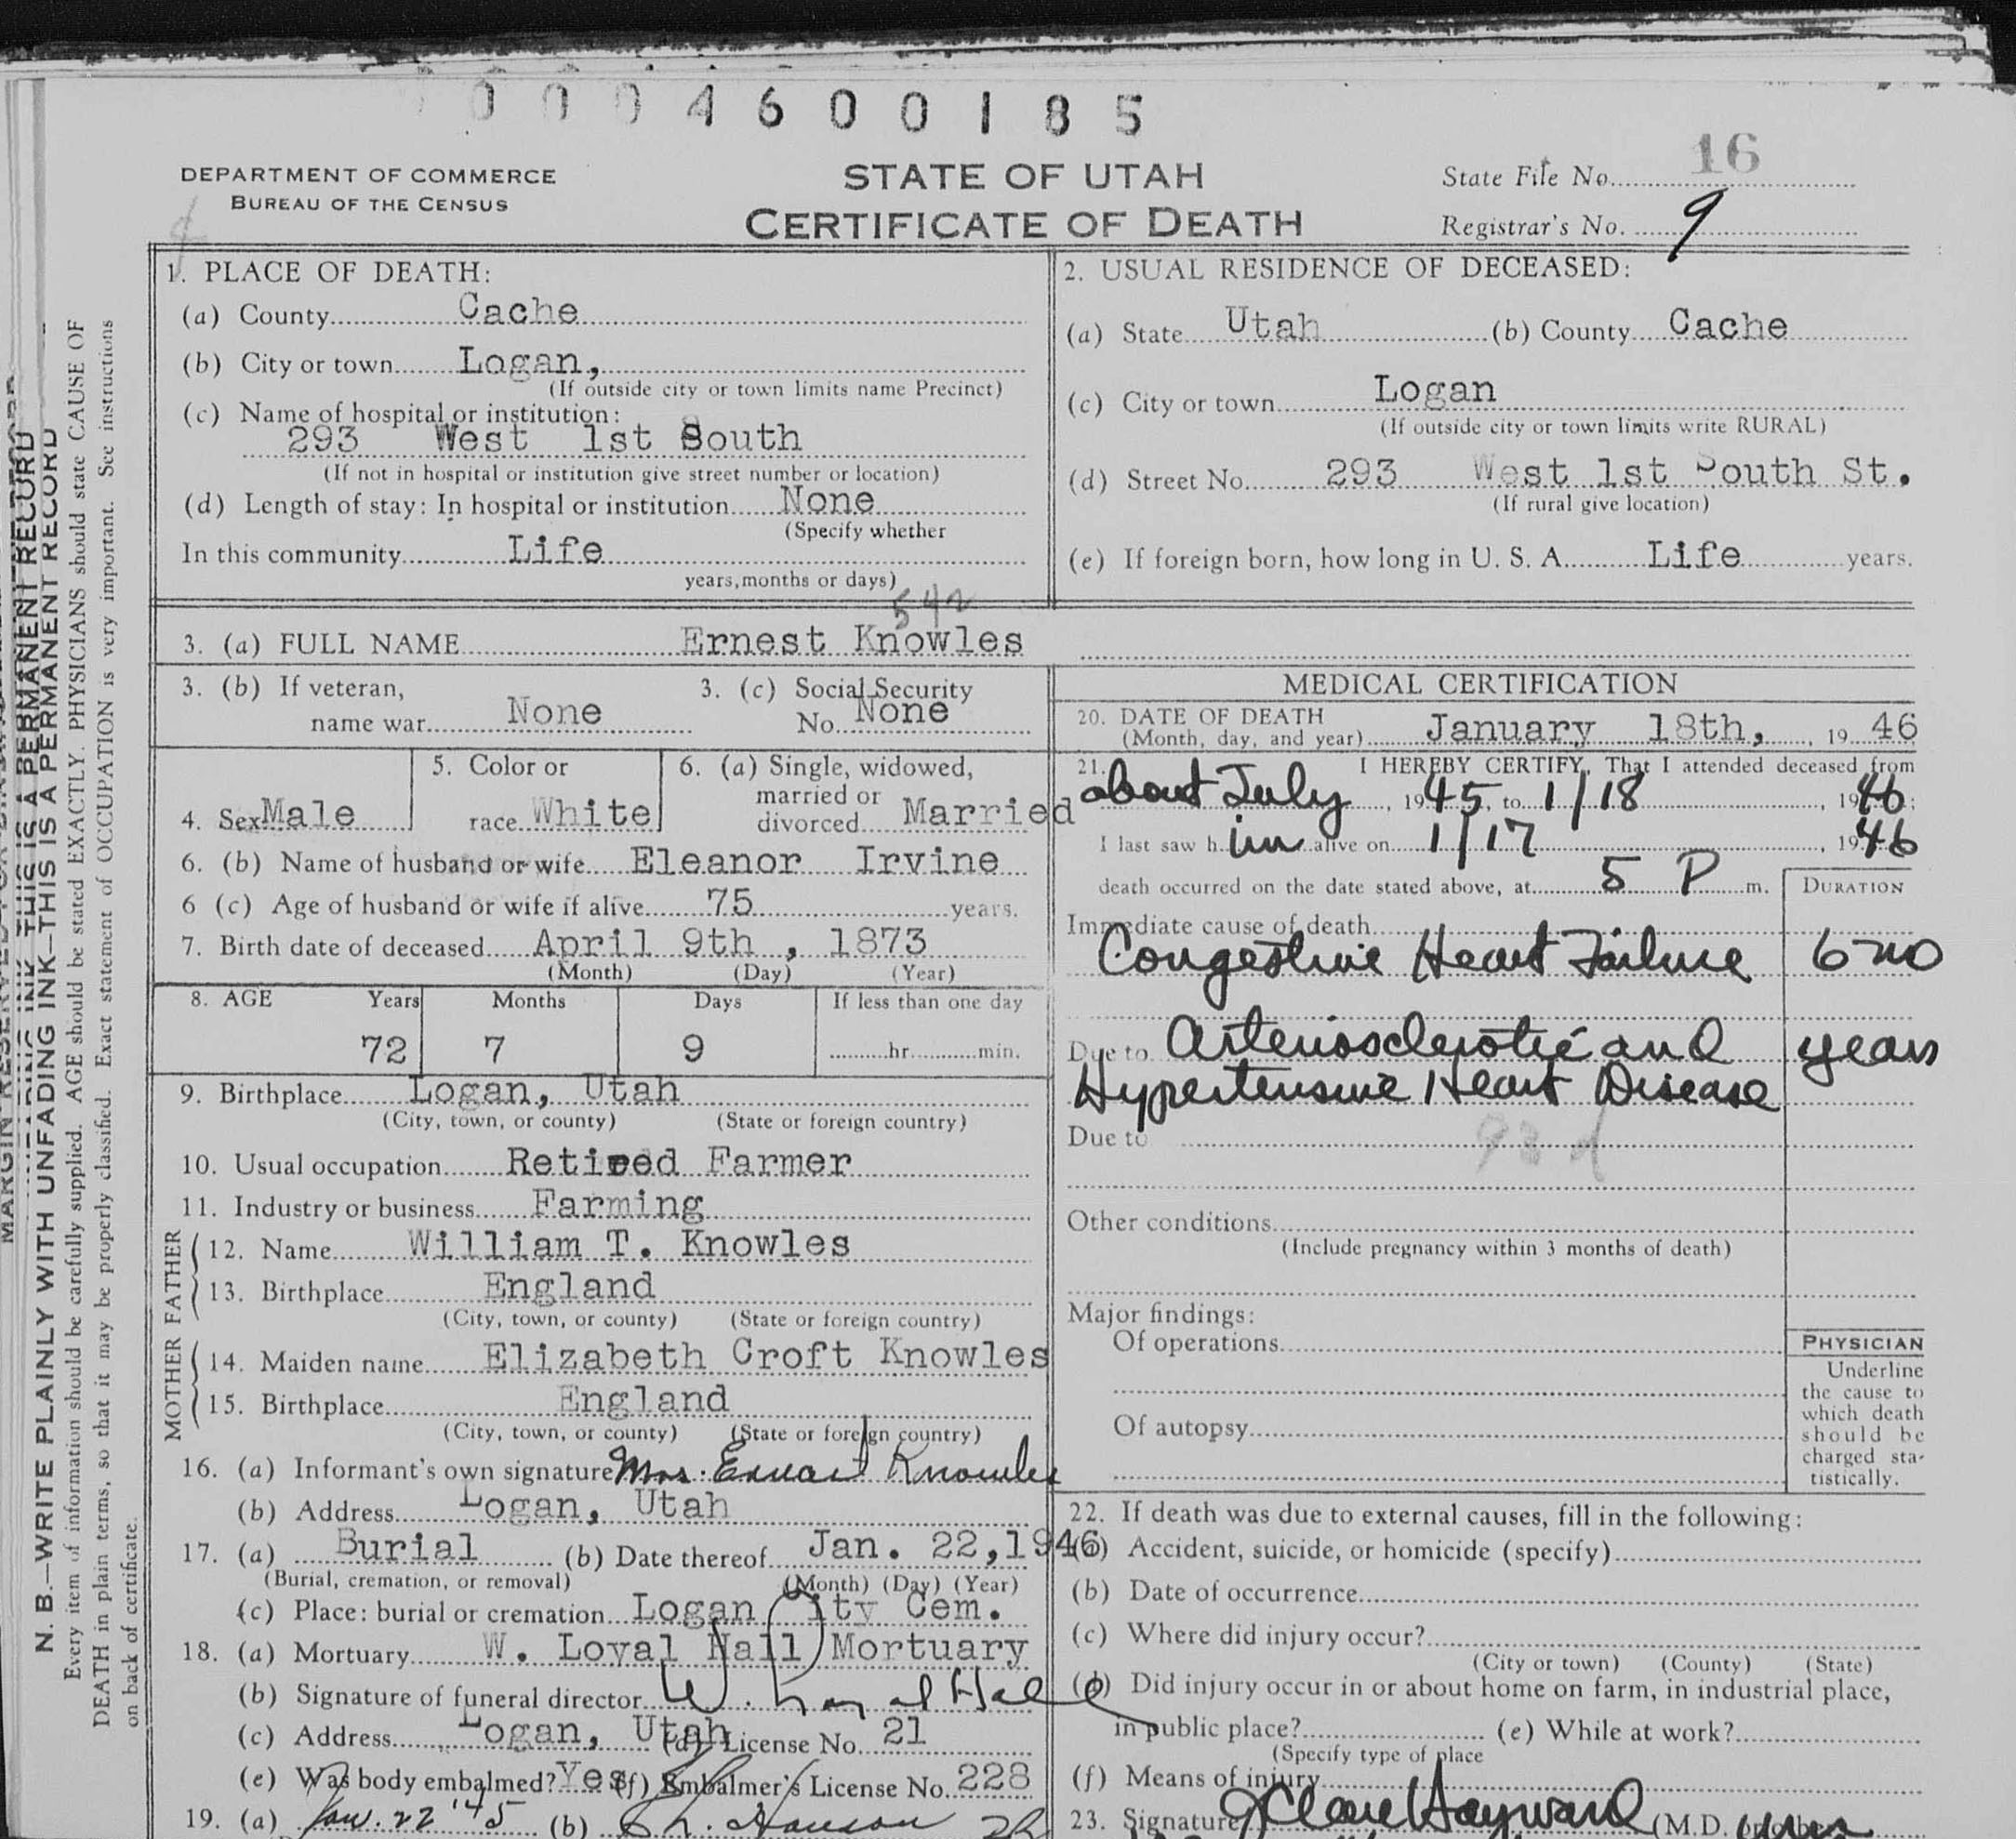 0 0 0 4 6 0 0 1 8 5
DEPARTMENT OF COMMERCE
BUREAU OF THE CENSUS
STATE OF UTAH
CERTIFICATE OF DEATH
State File No. 16
Registrar's No. 9
1. PLACE OF DEATH:
(a) County Cache
(b) City or town Logan,
(If outside city or town limits name Precinct)
(c) Name of hospital or institution:
293 West 1st South
(If not in hospital or institution give street number or location)
(d) Length of stay: In hospital or institution None
(Specify whether
In this community Life
years, months or days)
2. USUAL RESIDENCE OF DECEASED:
(a) State Utah (b) County Cache
(c) City or town Logan
(If outside city or town limits write RURAL)
(d) Street No. 293 West 1st South St.
(If rural give location)
(e) If foreign born, how long in U. S. A. Life years.
542
3. (a) FULL NAME Ernest Knowles
3. (b) If veteran,
name war None
3. (c) Social Security
No. None
4. Sex Male
5. Color or
race White
6. (a) Single, widowed,
married or
divorced Married
6. (b) Name of husband or wife Eleanor Irvine
6 (c) Age of husband or wife if alive 75 years.
7. Birth date of deceased April 9th , 1873
(Month) (Day) (Year)
8. AGE Years Months Days If less than one day
72 7 9 hr. min.
9. Birthplace Logan, Utah
(City, town, or county) (State or foreign country)
10. Usual occupation Retired Farmer
11. Industry or business Farming
FATHER
12. Name William T. Knowles
13. Birthplace England
(City, town, or county) (State or foreign country)
MOTHER
14. Maiden name Elizabeth Croft Knowles
15. Birthplace England
(City, town, or county) (State or foreign country)
16. (a) Informant's own signature Mrs. Ernest Knowles
(b) Address Logan, Utah
17. (a) Burial (b) Date thereof Jan. 22,1946
(Burial, cremation, or removal) (Month) (Day) (Year)
(c) Place: burial or cremation Logan City Cem.
18. (a) Mortuary W. Loyal Hall Mortuary
(b) Signature of funeral director W. Loyal Hall
(c) Address Logan, Utah (d) License No. 21
(e) Was body embalmed? Yes (f) Embalmer's License No. 228
19. (a) Jan. 22 '45 (b)
MEDICAL CERTIFICATION
20. DATE OF DEATH
(Month, day, and year) January 18th, , 19 46
21. I HEREBY CERTIFY, That I attended deceased from
about July , 1945, to 1/18 , 1946;
I last saw him alive on 1/17 , 1946
death occurred on the date stated above, at 5 P m.
DURATION
Immediate cause of death
Congestive Heart Failure 6 mo
Due to Arteriosclerotic and years
Hypertensive Heart Disease
Due to 93d
Other conditions
(Include pregnancy within 3 months of death)
Major findings:
Of operations
Of autopsy
PHYSICIAN
Underline
the cause to
which death
should be
charged sta-
tistically.
22. If death was due to external causes, fill in the following:
(a) Accident, suicide, or homicide (specify)
(b) Date of occurrence
(c) Where did injury occur?
(City or town) (County) (State)
(d) Did injury occur in or about home on farm, in industrial place,
in public place? (e) While at work?
(Specify type of place
(f) Means of injury
23. Signature J Clare Hayward (M.D.
N. B.—WRITE PLAINLY WITH UNFADING INK—THIS IS A PERMANENT RECORD
Every item of information should be carefully supplied. AGE should be stated EXACTLY. PHYSICIANS should state CAUSE OF
DEATH in plain terms, so that it may be properly classified. Exact statement of OCCUPATION is very important. See instructions
on back of certificate.